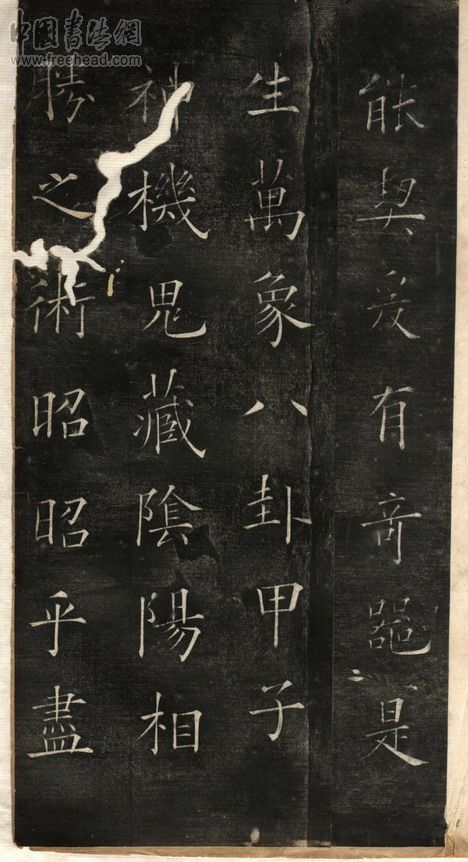 中國書法網
www.freehead.com
能契爰有奇噐是
生萬象八卦甲子
神機鬼藏陰陽相
勝之術昭昭乎盡